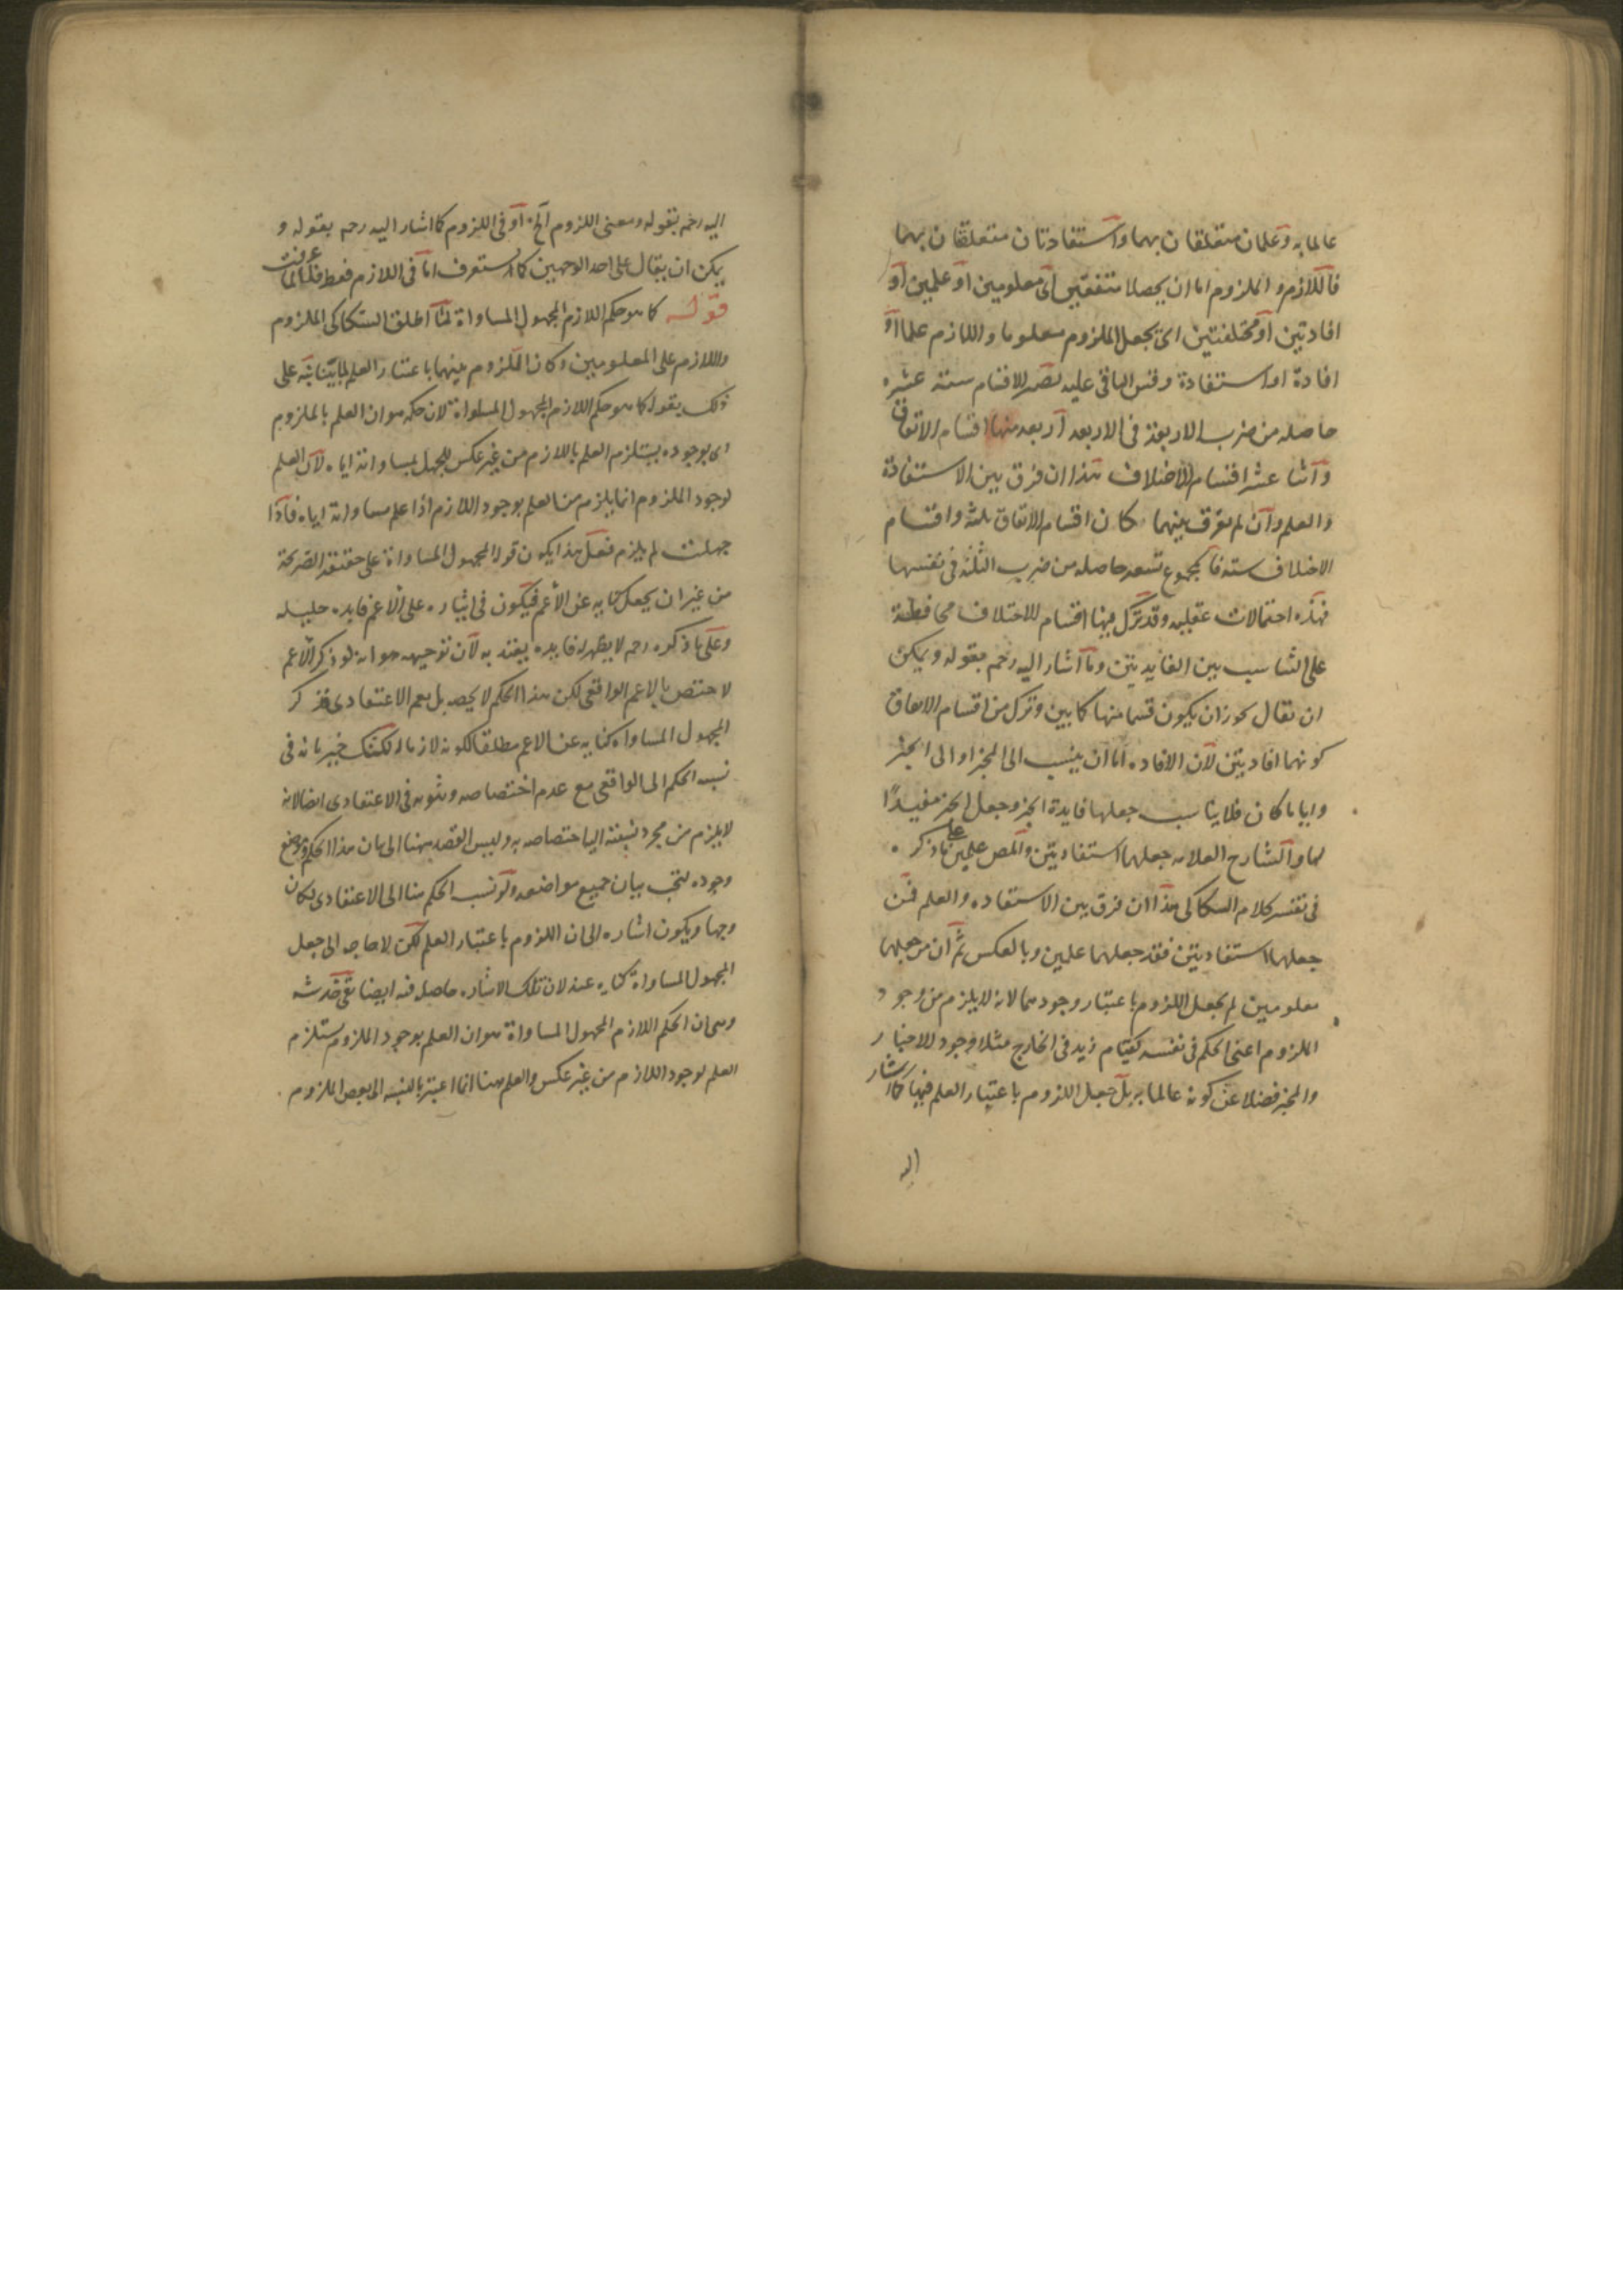 عالما به وعلمان متعلقان بهما واستفادتان متعلقتان بهما
فاللازم والملزوم اما ان يحصلا متفقين اى معلومين او علمين او
افادتين او مختلفتين اى يجعل الملزوم معلوما واللازم علما او
افادة او استفادة وقس الباقى عليه تصير الاقسام ستة عشر
حاصله من ضرب الاربعة فى الاربعه اربعه منها اقسام الاتفاق
واثنا عشر اقسام الاختلاف هذا ان فرق بين الاستفادة
والعلم وان لم يفرق بينهما كان اقسام الاتفاق ثلثة واقسام
الاختلاف سته فالمجموع تسعه حاصله من ضرب الثلثة فى نفسها
فهذه احتمالات عقليه وقد ترك فيها اقسام الاختلاف محافظة
على التناسب بين الفايدتين وما اشار اليه رحمه بقوله ويمكن
ان يقال يجوز ان يكون قسما منها كما بين وترك من اقسام الاتفاق
كونهما افادتين لان الافاده اما ان ينسب الى المخبر او الى الخبر
وايا ما كان فلا يناسب جعلها فايدة الخبر وجعل الخبر مفيدًا
لها والشارح العلامه جعلهما استفادتين والمص علمين على ما ذكره
فى تفسير كلام السكاكى هذا ان فرق بين الاستفاده والعلم فمن
جعلهما استفادتين فقد جعلهما علمين وبالعكس ثم ان من جعلهما
معلومين لم يجعل اللزوم باعتبار وجودهما لانه لا يلزم من وجود
الملزوم اعنى الحكم فى نفسه كقيام زيد فى الخارج مثلا وجود الاخبار
والمخبر فضلا عن كونه عالما به بل جعل اللزوم باعتبار العلم فيهما كما اشار
اليه
اليه رحمه بقوله ومعنى اللزوم الخ او فى اللزوم كما اشار اليه رحمه بقوله و
يمكن ان يقال على احد الوجهين كما ستعرف اما فى اللازم فقط فلما عرفت
قوله كما هو حكم اللازم المجهول المساواة لما اطلق السكاكى الملزوم
واللازم على المعلومين وكان اللزوم بينهما باعتبار العلم لما بينا نبه على
ذلك بقوله كما هو حكم اللازم المجهول المساواة لان حكمه هو ان العلم بالملزوم
اى بوجوده يستلزم العلم باللازم من غير عكس للجهل بمساواته اياه لان العلم
بوجود الملزوم انما يلزم من العلم بوجود اللازم اذا علم مساواته اياه فاذا
جهلت لم يلزم فعلى هذا يكون قوله المجهول المساواة على حقيقته الصريحة
من غير ان يجعل كنايه عن الاعم فيكون فى ايثاره على الاعم فايده جليله
وعلى ما ذكره رحمه لا يظهر له فايده يعتد به لان توجيهه هو انه لو ذكر الاعم
لاختص بالاعم الواقعى لكن هذا الحكم لا يخصه بل يعم الاعتقادى فذكر
المجهول المساواه كنايه عن الاعم مطلقا لكونه لازما له لكنك خبير بانه فى
نسبه الحكم الى الواقعى مع عدم اختصاصه وثبوته فى الاعتقادى ايضا لانه
لا يلزم من مجرد نسبته اليه اختصاصه به وليس القصد ههنا الى بيان هذا الحكم ومواضع
وجوده ليجب بيان جميع مواضعه ولو نسب الحكم هنا الى الاعتقادى لكان
وجها ويكون اشاره الى ان اللزوم باعتبار العلم لكن لا حاجه الى جعل
المجهول المساواة كنايه عنه لان تلك الاشاره حاصله فيه ايضا بقى خدشه
وهى ان الحكم اللازم المجهول المساواة هو ان العلم بوجود الملزوم يستلزم
العلم بوجود اللازم من غير عكس والعلم هنا انما اعتبر بالنسبه الى بعض الملزوم